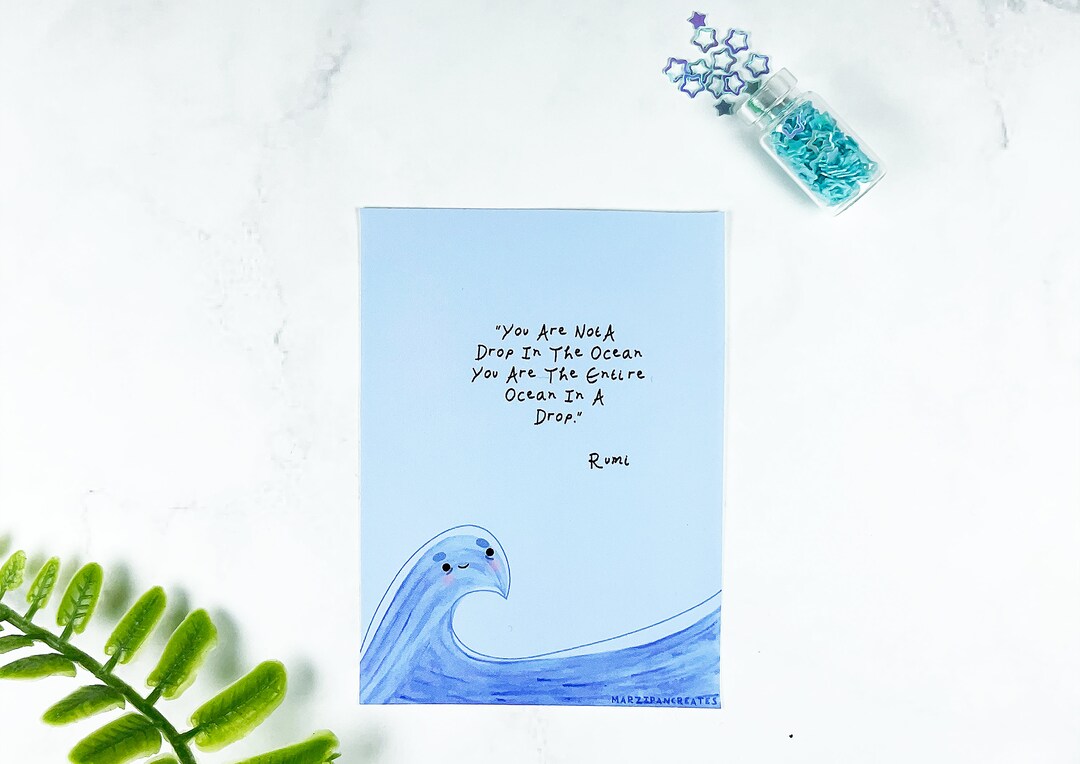 "You Are Not A
Drop In The Ocean
You Are The Entire
Ocean In A
Drop."
Rumi
MARZIPANCREATES